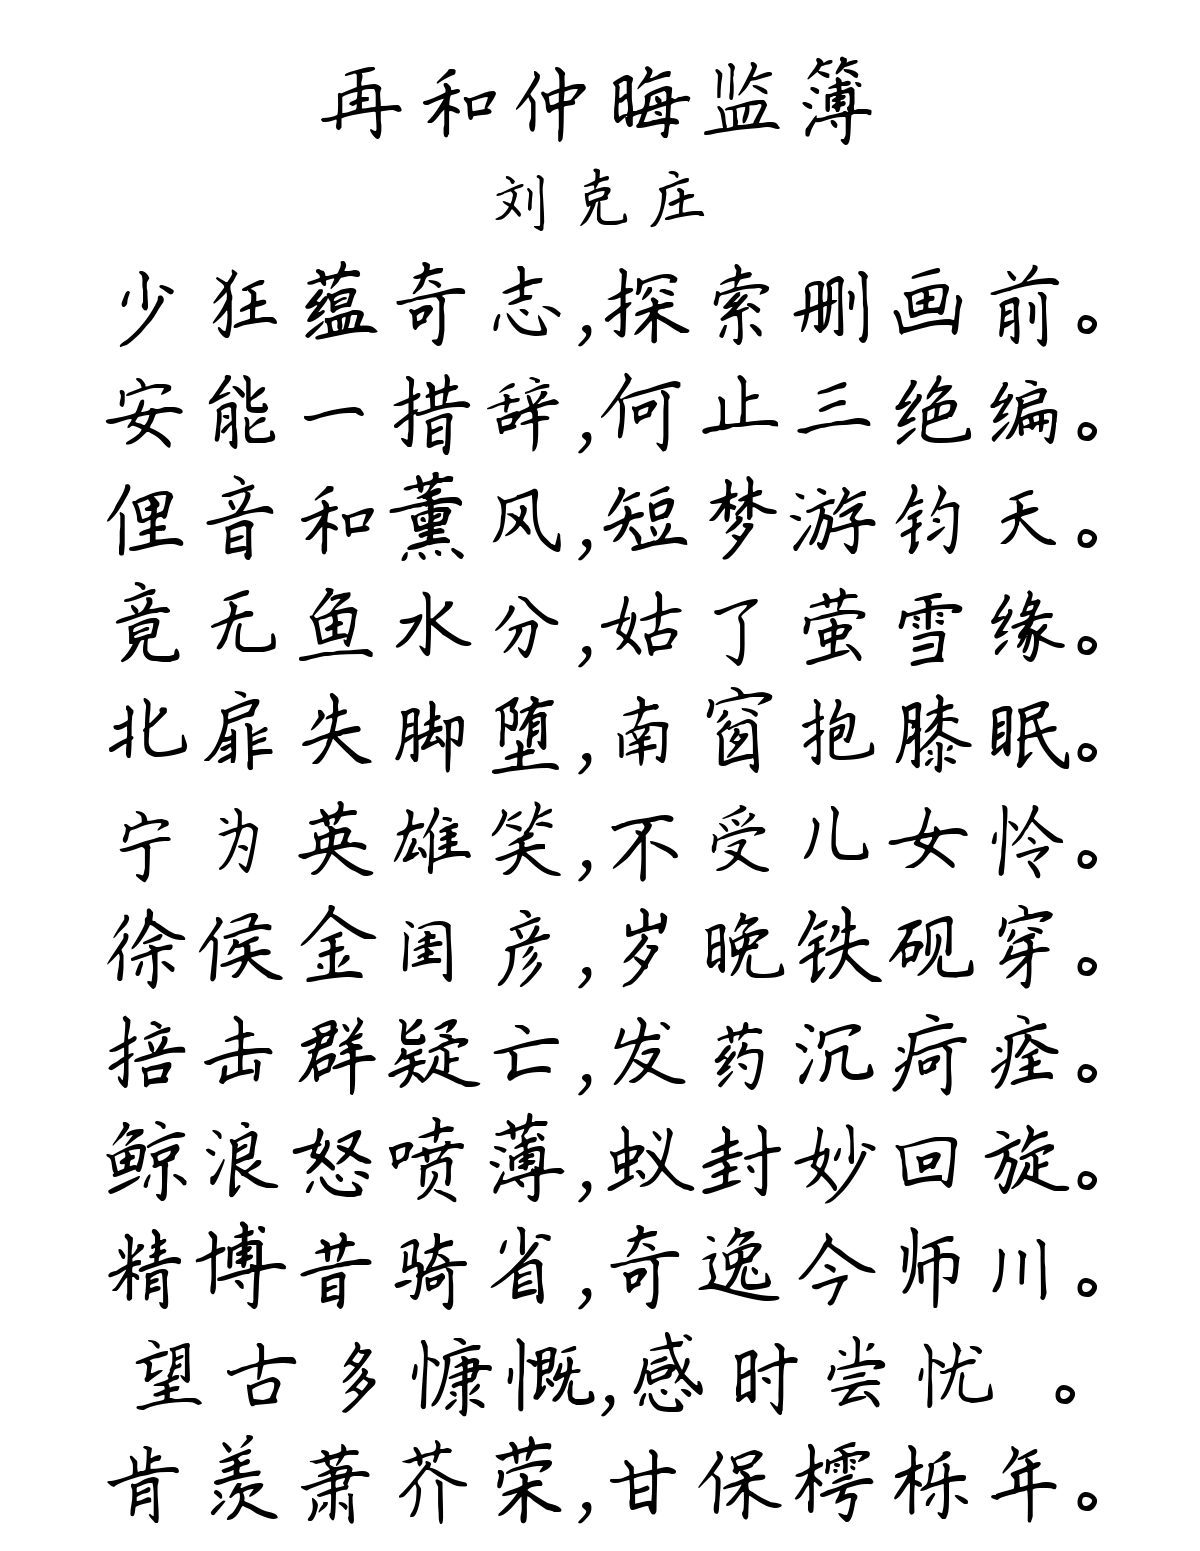 再和仲晦监簿
刘克庄
少狂蕴奇志,探索删画前。
安能一措辞,何止三绝编。
俚音和薰风,短梦游钧天。
竟无鱼水分,姑了萤雪缘。
北扉失脚堕,南窗抱膝眠。
宁为英雄笑,不受儿女怜。
徐侯金闺彦,岁晚铁砚穿。
掊击群疑亡,发药沉疴痊。
鲸浪怒喷薄,蚁封妙回旋。
精博昔骑省,奇逸今师川。
望古多慷慨,感时尝忧 。
肯羡萧芥荣,甘保樗栎年。